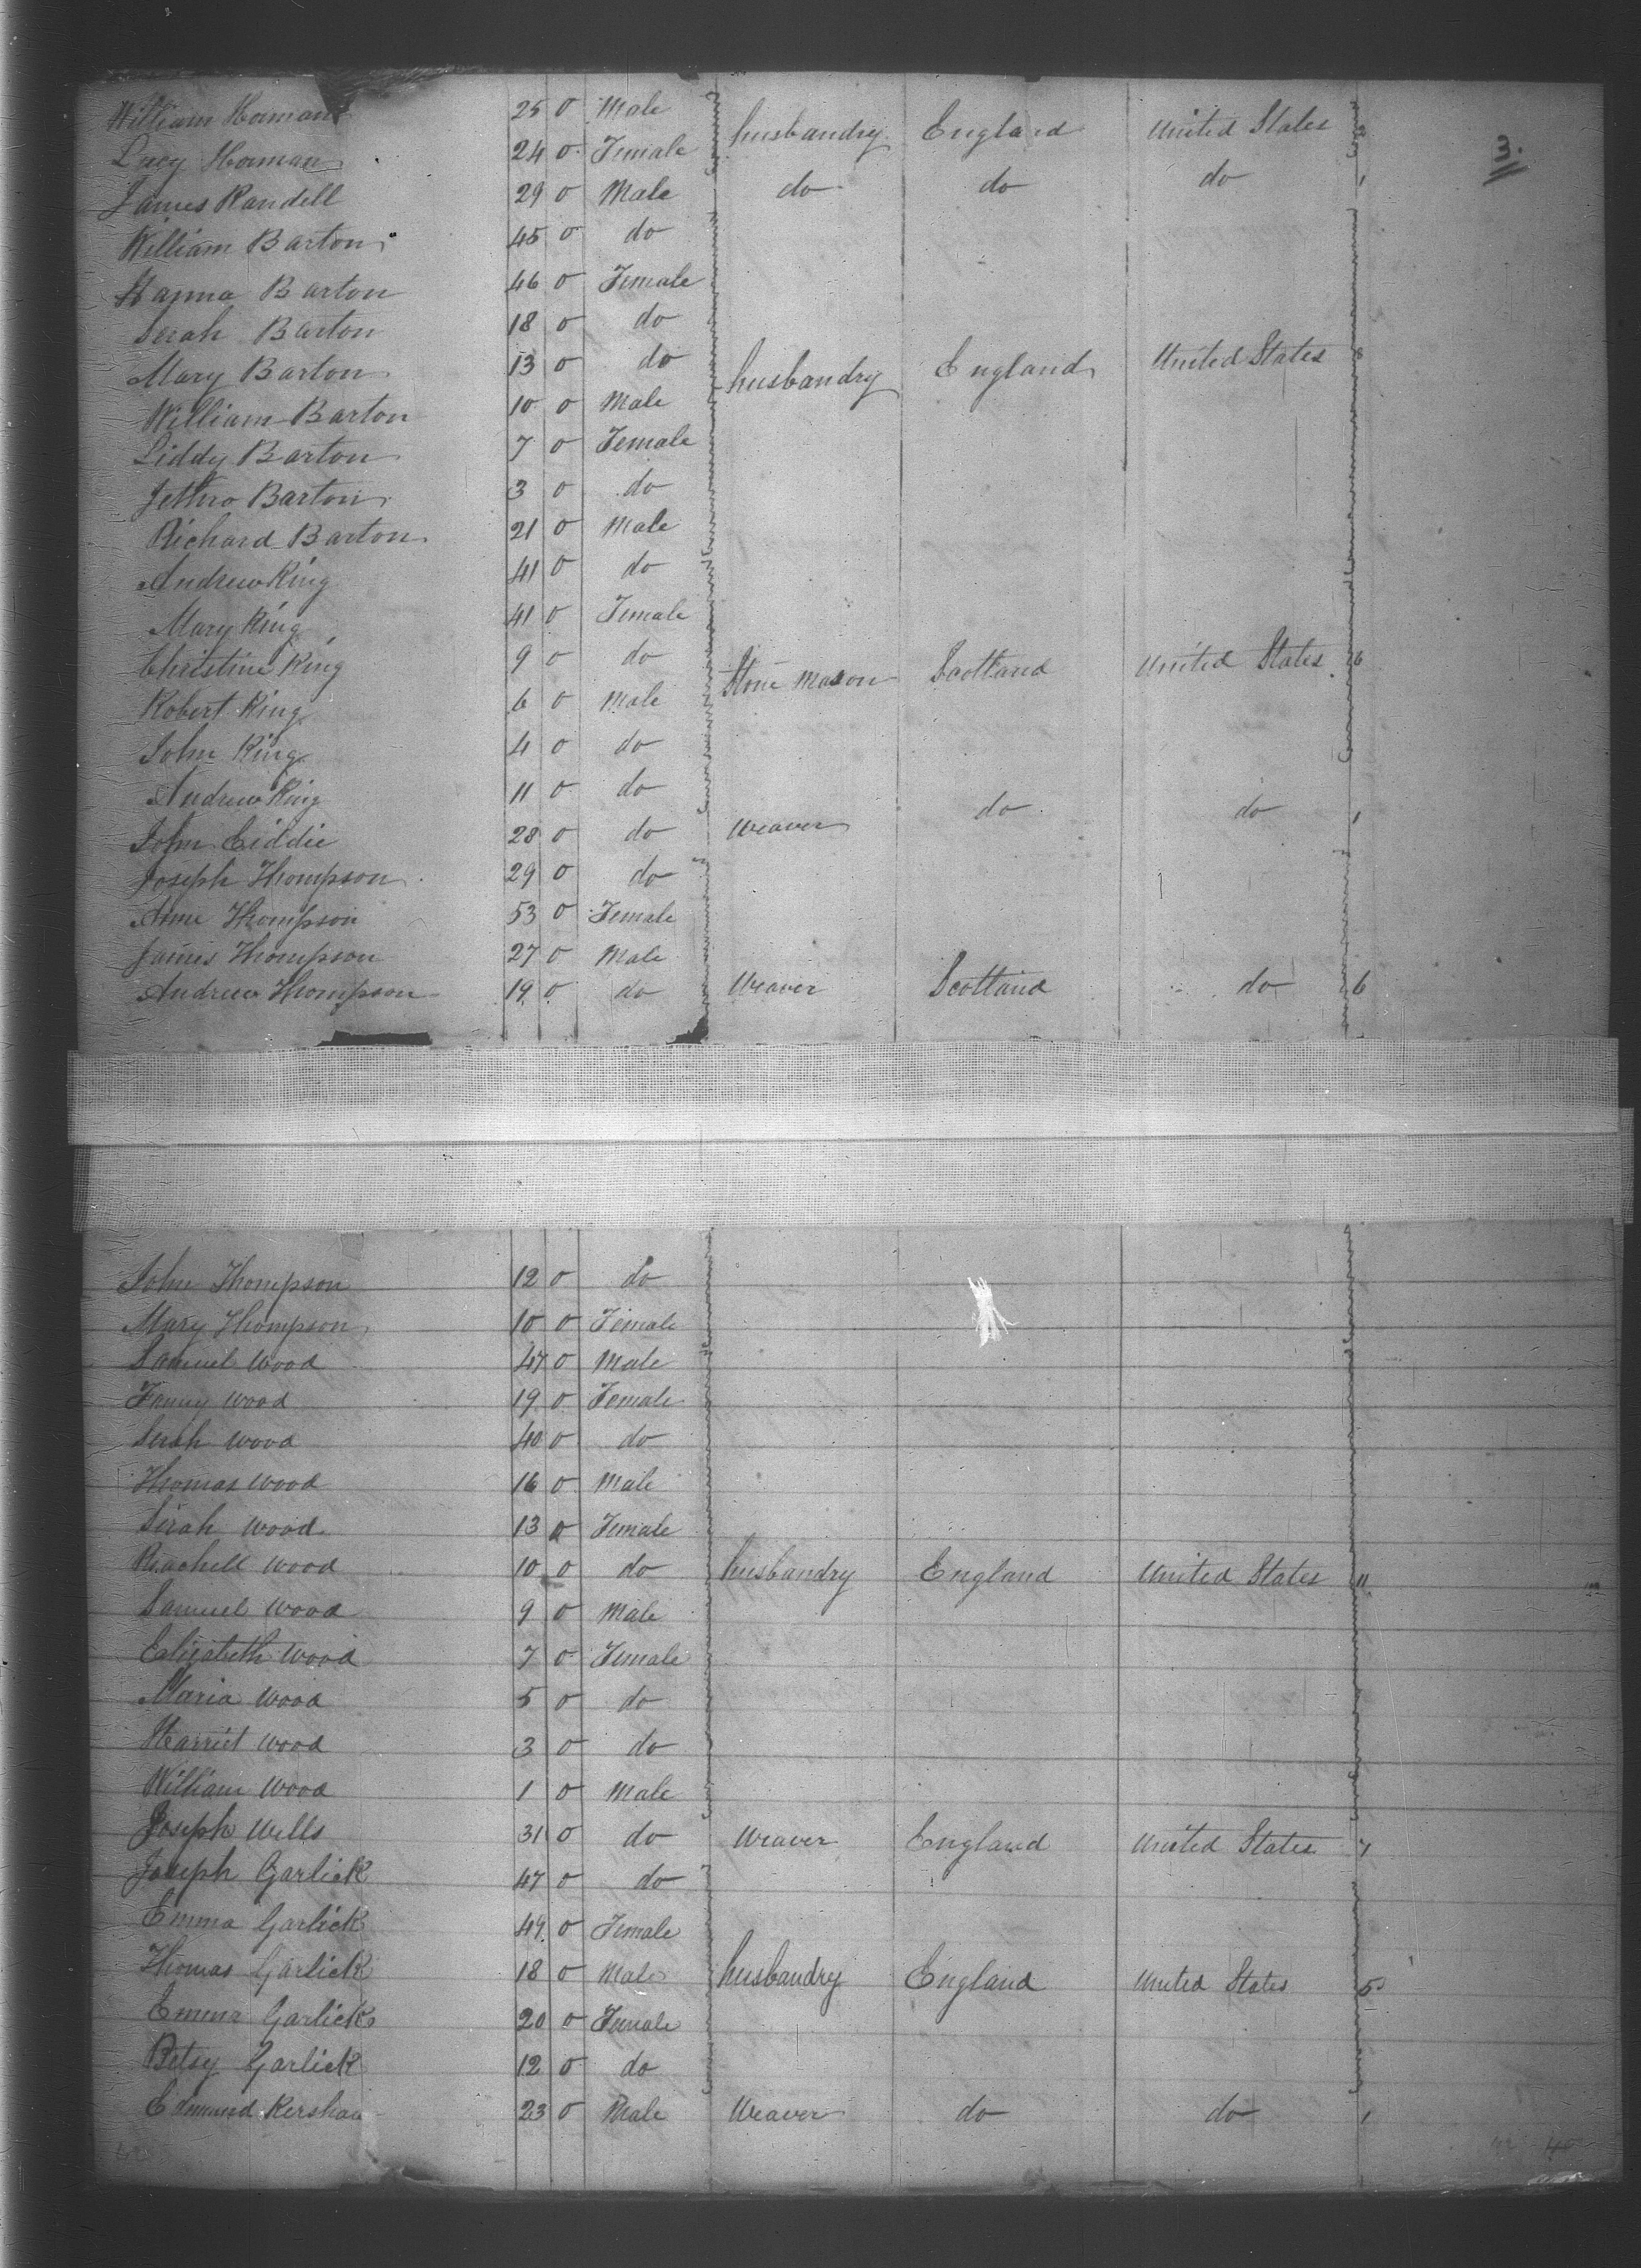 William Homan 25 0 Male husbandry England United States 2
Lucy Homan 24 0 Female
3.
James Randell 29 0 Male do do do 1
William Barton 45 0 do
Hanna Barton 46 0 Female
Serah Barton 18 0 do
Mary Barton 13 0 do husbandry England United States 8
William Barton 10 0 Male
Liddy Barton 7 0 Female
Jethro Barton 3 0 do
Richard Barton 21 0 Male
Andrew King 41 0 do
Mary King 41 0 Female
Christine King 9 0 do Stone Mason Scotland United States 6
Robert King 6 0 Male
John King 4 0 do
Andrew King 11 0 do
John Eiddie 28 0 do Weaver do do 1
Joseph Thompson 29 0 do
Anne Thompson 53 0 Female
James Thompson 27 0 Male
Andrew Thompson 14 0 do Weaver Scotland do 6
John Thompson 12 0 do
Mary Thompson 10 0 Female
Samuel Wood 47 0 Male
Fanny Wood 19 0 Female
Serah Wood 40 0 do
Thomas Wood 16 0 Male
Serah Wood 13 0 Female
Rachell Wood 10 0 do husbandry England United States 11
Samuel Wood 9 0 Male
Elizabeth Wood 7 0 Female
Maria Wood 5 0 do
Harriet Wood 3 0 do
William Wood 1 0 Male
Joseph Wells 31 0 do Weaver England United States 1
Joseph Garlick 47 0 do
Emma Garlick 49 0 Female
Thomas Garlick 18 0 Male husbandry England United States 5
Emma Garlick 20 0 Female
Betsy Garlick 12 0 do
Edmund Kershaw 23 0 Male Weaver do do 1